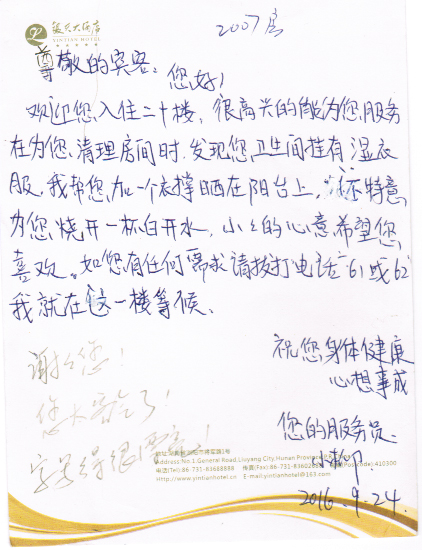 银天大酒店
YINTIAN HOTEL
2007房
尊敬的宾客:
您好!
欢迎您入住二十楼,很高兴的能为您服务
在为您清理房间时,发现您卫生间挂有湿衣
服,我帮您加一个衣撑晒在阳台上,还特意
为您烧开一杯白开水,小小的心意希望您
喜欢。如您有任何需求请拨打电话"61或62"
我就在这一楼等候。
祝您身体健康
心想事成
谢谢您!
您太客气了!
字写得很漂亮!
您的服务员:
小柳
2016.9.24.
Address:No.1 General Road,Liuyang City,Hunan Province
Tel:86-731-83688888
Http://www.yintianhotel.cn E-mail:yintianhotel@163.com